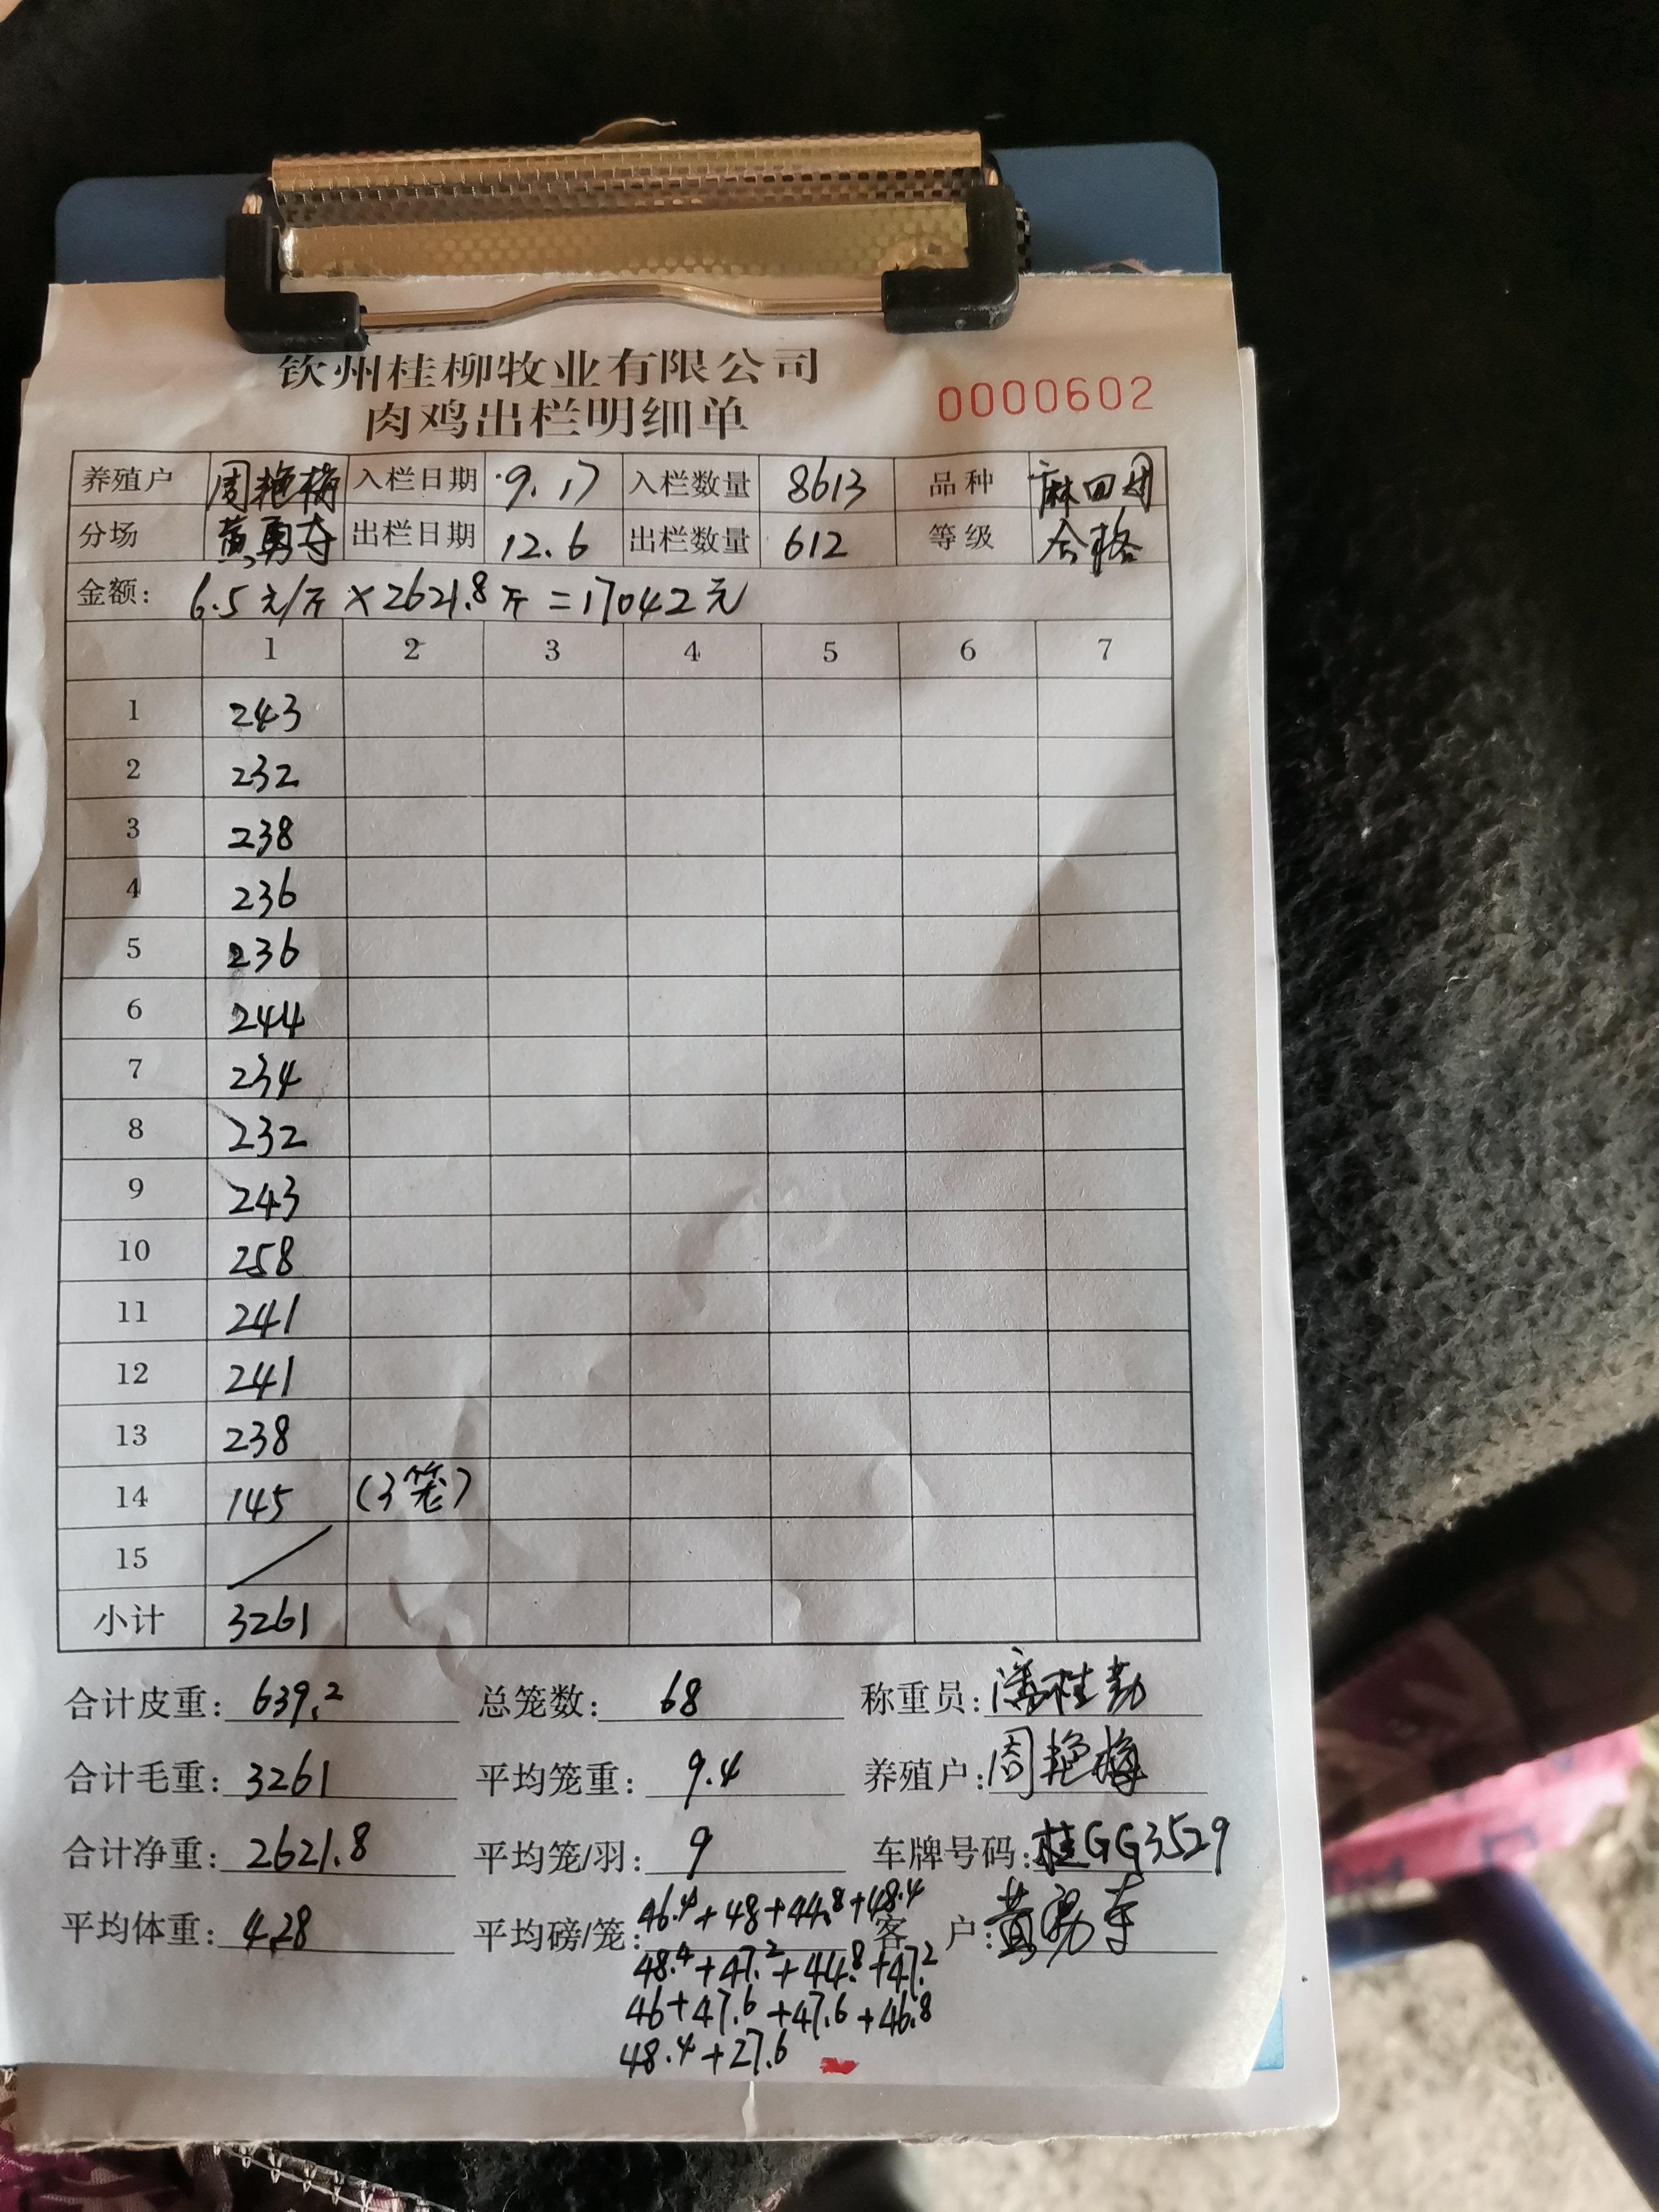 钦州桂柳牧业有限公司
肉鸡出栏明细单
0000602
养殖户 周艳梅 入栏日期 9.17 入栏数量 8613 品种 麻四
分场 黄勇 出栏日期 12.6 出栏数量 612 等级 合格
金额: 6.5元/斤×2621.8斤=17042元
1 2 3 4 5 6 7
1 243
2 232
3 238
4 236
5 236
6 244
7 234
8 232
9 243
10 258
11 241
12 241
13 238
14 145 (3笼)
15
小计 3261
合计皮重: 639.2 总笼数: 68 称重员: 潘桂勤
合计毛重: 3261 平均笼重: 9.4 养殖户: 周艳梅
合计净重: 2621.8 平均笼/羽: 9 车牌号码: 桂GG3529
46.4+48+44.8+48.4
平均体重: 4.28 平均磅/笼: 客 户: 黄勇
48.4+47.2+44.8+47.2
46+47.6+47.6+46.8
48.4+27.6